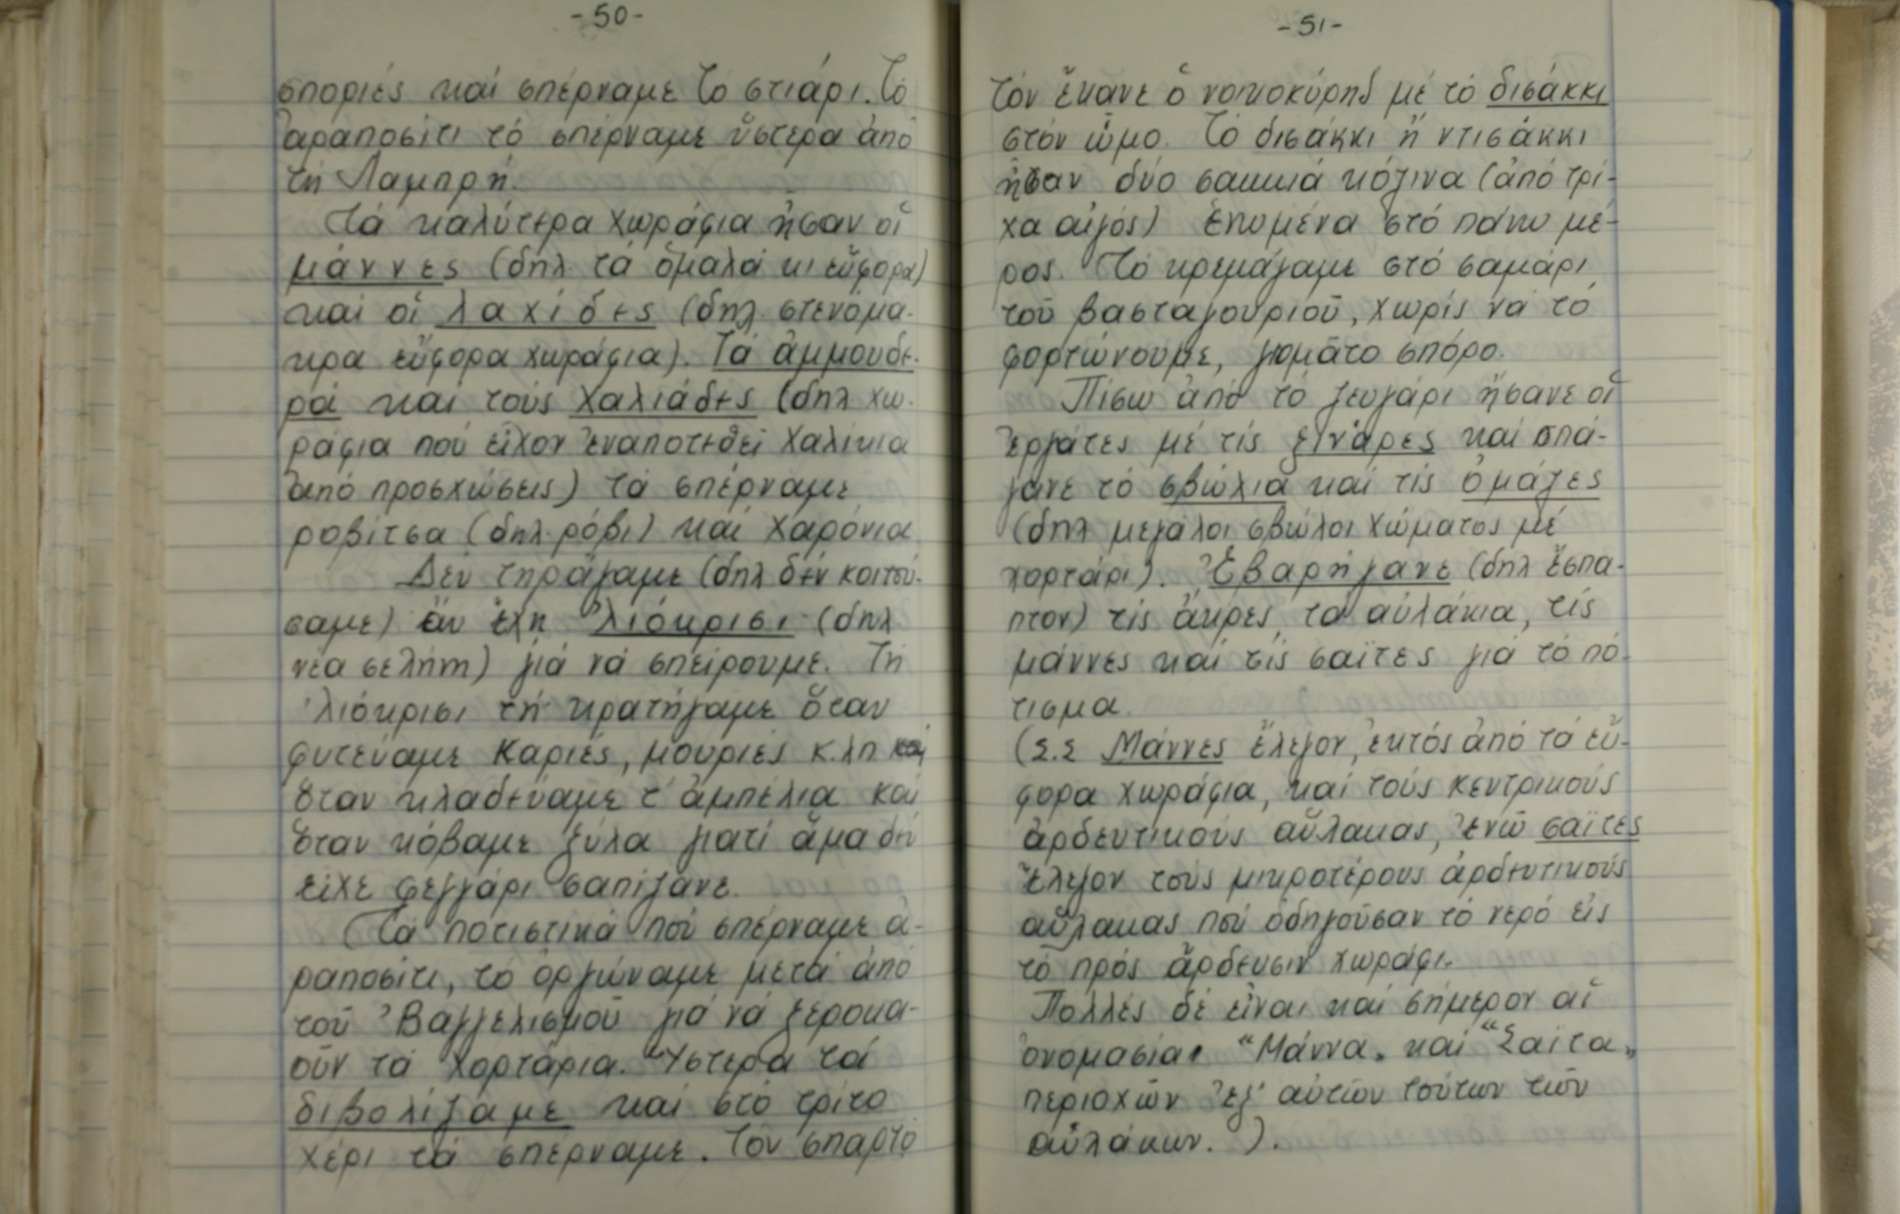 -50-
σποριές καί σπέρναμε τό στιάρι. Τό
ἀραποσίτι τό σπέρναμε ὕστερα ἀπό
τή Λαμπρή.
Τά καλύτερα χωράφια ἦσαν οἱ
μάννες (δηλ. τά ὁμαλά κι εὔφορα)
καί οἱ λαχίδες (δηλ. στενόμα-
κρα εὔφορα χωράφια). Τά ἀμμουδε-
ρά καί τούς χαλιάδες (δηλ χω-
ράφια πού εἶχον ἐναποτεθεῖ χαλίκια
ἀπό προσχώσεις) τά σπέρναμε
ροβίτσα (δηλ. ρόβι) καί χαρόνια
Δέν τηράγαμε (δηλ δέν κοιτού-
σαμε) ἄν ἔχη 'λιόκρισι (δηλ
νέα σελήνη) γιά νά σπείρουμε. Τή
'λιόκρισι τή κρατήγαμε ὅταν
φυτεύαμε καριές, μουριές κ.λπ καί
ὅταν κλαδεύαμε τ' ἀμπέλια καί
ὅταν κόβαμε ξύλα γιατί ἅμα δέν
εἶχε φεγγάρι σαπίζανε.
Τά ποτιστικά πού σπέρναμε ἀ-
ραποσίτι, τό ὀργώναμε μετά ἀπό
τοῦ Βαγγελισμοῦ γιά νά ξεροκα-
οῦν τά χορτάρια. Ὕστερα τά
διβολίζαμε καί στό τρίτο
χέρι τά σπέρναμε. Τόν σπαρτό
-51-
τόν ἔκανε ὁ νοικοκύρης μέ τό δισάκκι
στόν ὦμο. Τό δισάκκι ἤ ντισάκκι
ἦσαν δύο σακκιά κόζινα (ἀπό τρί-
χα αἰγός) ἑνωμένα στό πάνω μέ-
ρος. Τό κρεμάγαμε στό σαμάρι
τοῦ βασταγουριοῦ, χωρίς νά τό
φορτώνουμε, γιομᾶτο σπόρο.
Πίσω ἀπό τό ζευγάρι ἤσανε οἱ
ἐργάτες μέ τίς ξινάρες καί σπά-
γανε τό σβώλια καί τίς ὁμάζες
(δηλ μεγάλοι σβώλοι χώματος μέ
χορτάρι). Ἐβαρήγανε (δηλ ἔσπα-
πτον) τίς ἄκρες, τά αὐλάκια, τίς
μάννες καί τίς σαΐτες γιά τό πό-
τισμα.
(Σ.Σ Μάννες ἔλεγον, ἐκτός ἀπό τά εὔ-
φορα χωράφια, καί τούς κεντρικούς
ἀρδευτικούς αὔλακας, ἐνῶ σαΐτες
ἔλεγον τούς μικροτέρους ἀρδευτικούς
αὔλακας πού ὁδηγοῦσαν τό νερό εἰς
τό πρός ἄρδευσιν χωράφι.
Πολλές δέ εἶναι καί σήμερον αἱ
ὀνομασίαι "Μάννα" καί "Σαΐτα"
περιοχῶν ἐξ' αὐτῶν τούτων τῶν
αὐλάκων. ).